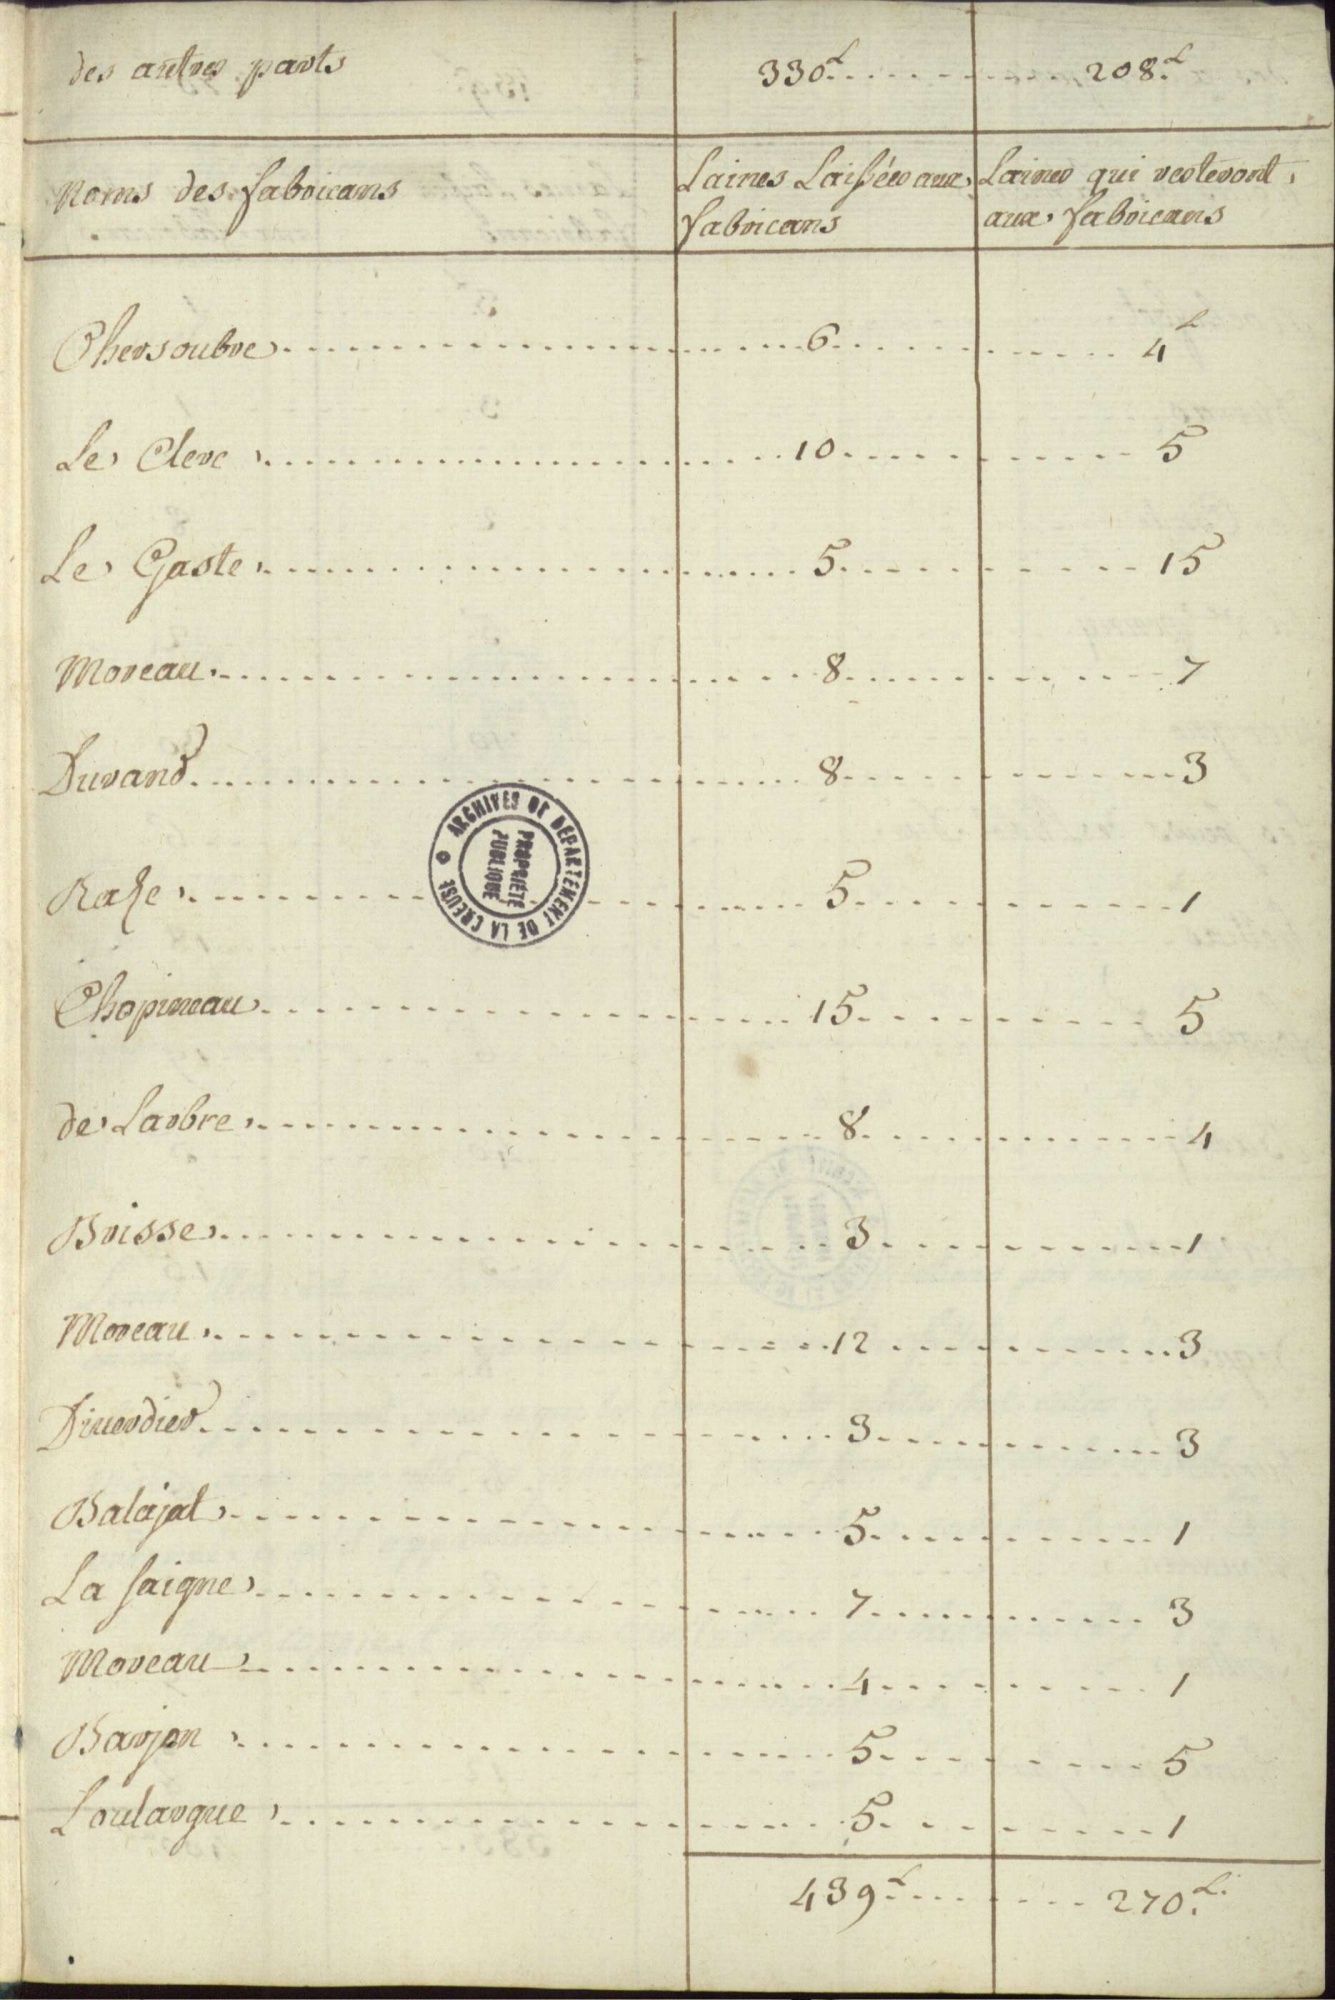 des autres parts 330ᴸ 208ᴸ
Noms des fabricans
Laines Laissées aux fabricans
Laines qui resteront aux fabricans
Chersoubre 6 4ᴸ
Le Clerc 10 5
Le Gaste 5 15
Moreau 8 7
Durand 8 3
Raze 5 1
Chopineau 15 5
de Larbre 8 4
Brisse 3 1
Moreau 12 3
Diverdier 3 3
Balajat 5 1
La saigne 7 3
Moreau 4 1
Barjon 5 5
Loulargue 5 1
439ᴸ 270ᴸ
ARCHIVES DE DÉPARTEMENT DE LA CREUSE
PROPRIÉTÉ
PUBLIQUE